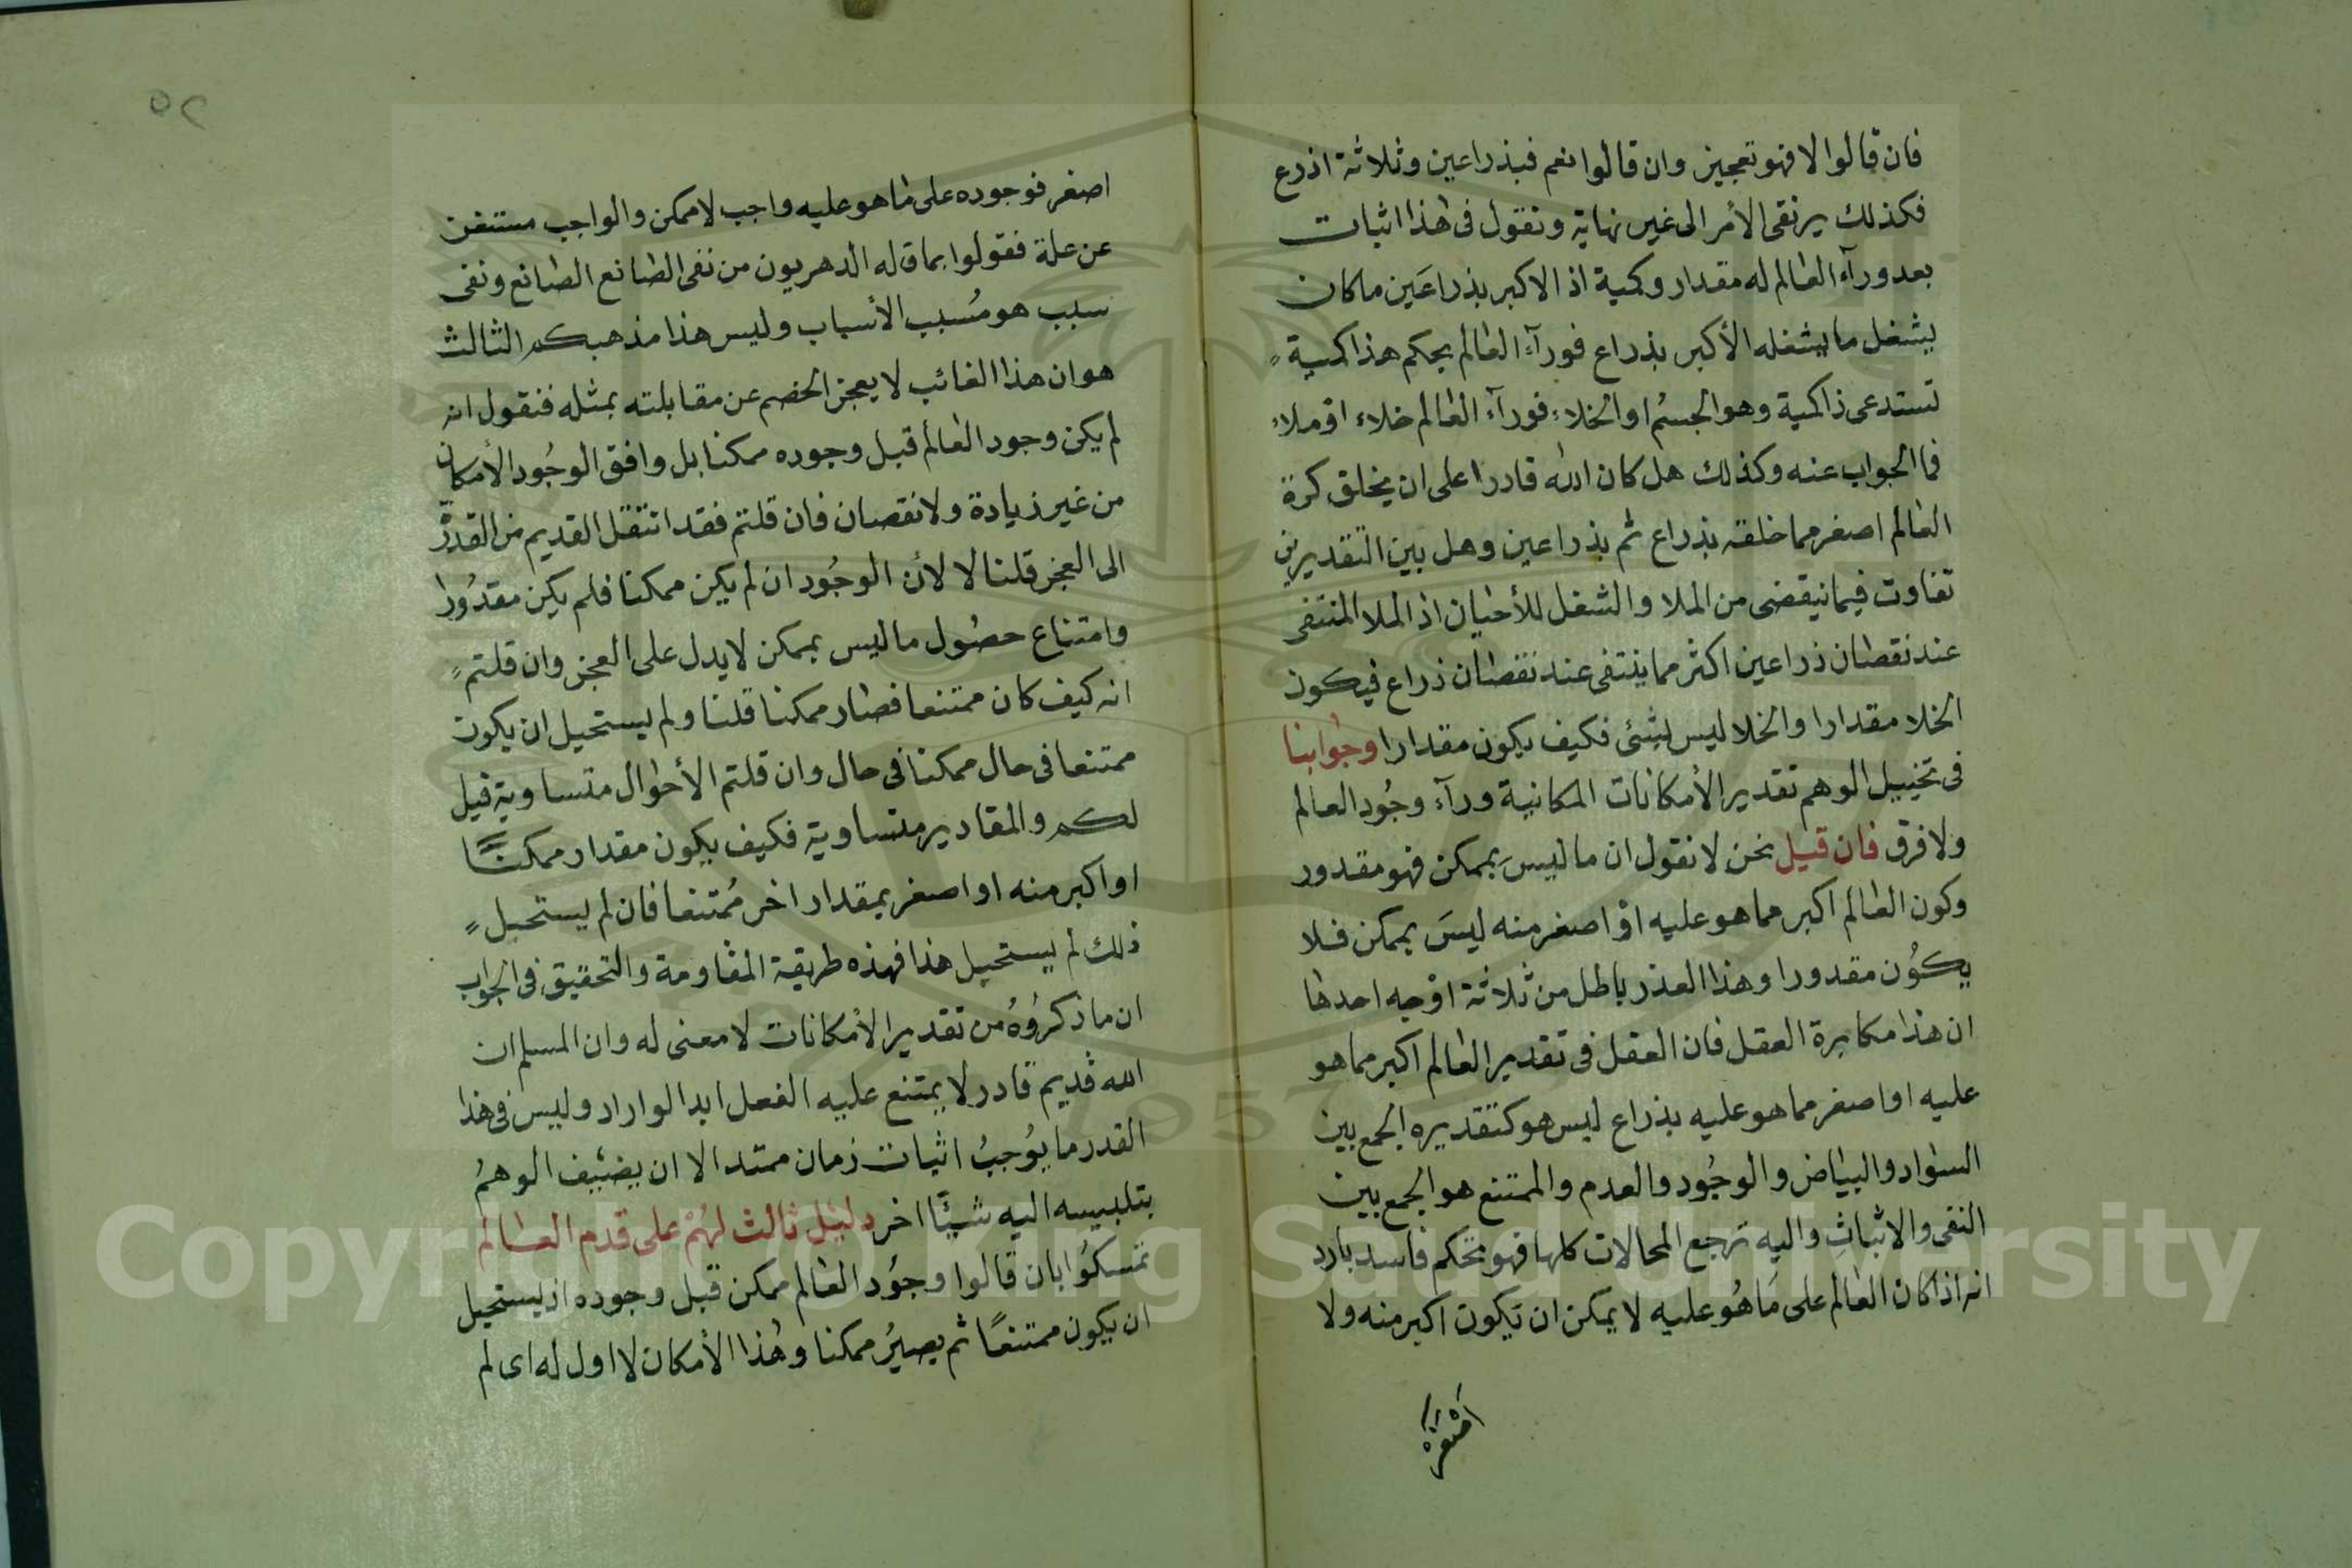 فان قالوا لا فهو تعجيز وان قالوا نعم فبذراعين وثلاثة اذرع
فكذلك يرتقى الأمر الى غير نهاية ونقول فى هذا اثبات
بعد ورآء العالم له مقدار وكمية اذ الاكبر بذراعين ما كان
يشغل ما يشغله الأكبر بذراع فورآء العالم بحكم هذا كمية
تستدعى ذا كمية وهو الجسم او الخلاء فورآء العالم خلاء او ملاء
فما الجواب عنه وكذلك هل كان الله قادرا على ان يخلق كرة
العالم اصغر مما خلقه بذراع ثم بذراعين وهل بين التقديرين
تفاوت فيما نيقضى من الملا والشغل للأحيان اذ الملا المنتفى
عند نقصان ذراعين اكثر مما ينتفى عند نقصان ذراع فيكون
الخلا مقدارا والخلا ليس بشئى فكيف يكون مقدارا وجوابنا
فى تخييل الوهم تقدير الأمكانات المكانية ورآء وجود العالم
ولا فرق فان قيل نحن لا نقول ان ما ليس بممكن فهو مقدور
وكون العالم اكبر مما هو عليه او اصغر منه ليس بممكن فلا
يكون مقدورا وهذا العذر باطل من ثلاثة اوجه احدها
ان هذا مكابرة العقل فان العقل فى تقدير العالم اكبر مما هو
عليه او اصغر مما هو عليه بذراع ليس هو كتقديره الجمع بين
السواد والبياض والوجود والعدم والممتنع هو الجمع بين
النفى والاثبات واليه ترجع المحالات كلها فهو تحكم فاسد بارد
انه اذا كان العالم على ما هو عليه لا يمكن ان تكون اكبر منه ولا
اصغره
٥٢
اصغر فوجوده على ما هو عليه واجب لا ممكن والواجب مستغن
عن علة فقولوا بما قاله الدهريون من نفى الصانع الصانع ونفى
سبب هو مسبب الأسباب وليس هذا مذهبكم الثالث
هو ان هذا الغائب لا يعجز الخصم عن مقابلته بمثله فنقول انه
لم يكن وجود العالم قبل وجوده ممكنا بل وافق الوجود الأمكان
من غير زيادة ولا نقصان فان قلتم فقد انتقل القديم من القدرة
الى العجز قلنا لا لأن الوجود ان لم يكن ممكنا فلم يكن مقدورا
وامتناع حصول ما ليس بممكن لا يدل على العجز وان قلتم
انه كيف كان ممتنعا فصار ممكنا قلنا ولم يستحيل ان يكون
ممتنعا فى حال ممكنا فى حال وان قلتم الأحوال متساوية قيل
لكم والمقادير متساوية فكيف يكون مقدار ممكنًا
او اكبر منه او اصغر بمقدار اخر ممتنعا فان لم يستحيل
ذلك لم يستحيل هذا فهذه طريقة المقاومة والتحقيق فى الجواب
ان ما ذكروه من تقدير الأمكانات لا معنى له وان المسلم ان
الله قديم قادر لا يمتنع عليه الفعل ابدا لو اراد وليس فى هذا
القدر ما يوجب اثبات زمان ممتد الا ان يضيف الوهم
بتلبيسه اليه شيئًا اخر دليل ثالث لهم على قدم العالم
تمسكوا بان قالوا وجود العالم ممكن قبل وجوده اذ يستحيل
ان يكون ممتنعًا ثم يصير ممكنا وهذا الأمكان لا اول له اى لم
Copyright © King Saud University
1957